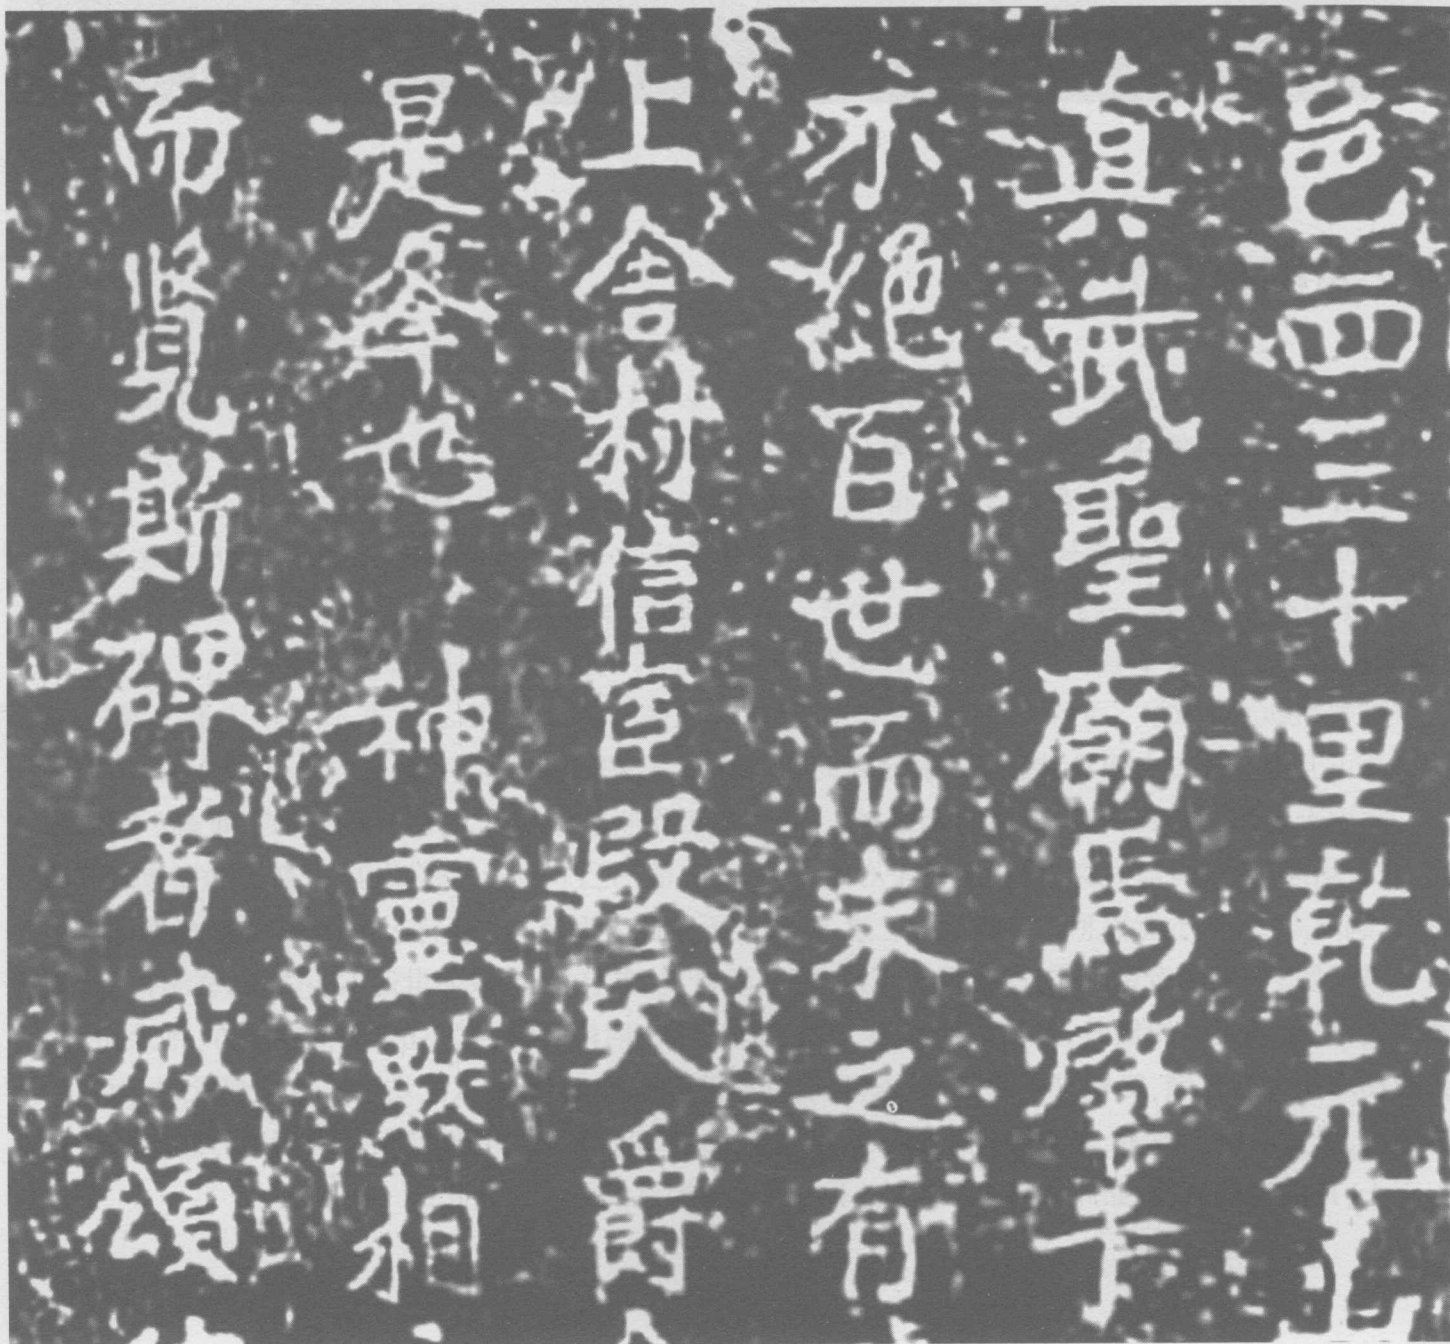 邑西三十里乾元
真武聖廟焉肇年
不絕百世而未之有
上舍村信宦段天爵
是夆也神靈默相
而覽斯碑者咸頌